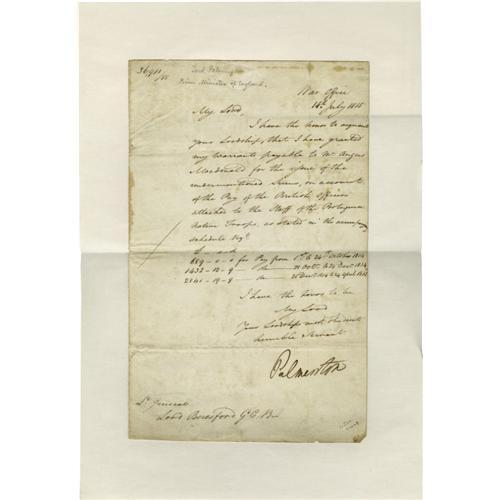 36911/55
Lord Palm
Prime Minister of England.
War Office
18th July 1815
My Lord,
I have the honor to acquaint
your Lordship, that I have granted
my Warrants payable to Mr. Angus
Macdonald for the issue of the
undermentioned Sums, on account
of the Pay of the British Officers
attached to the Staff of the Portuguese
native Troops, as stated in the accompg
Schedule
£ - s - d
689 - 0 - 0 for Pay from 1st to 24th October 1814
1432 - 12 - 9 - Do 25 Octr. to 24 Decr. 1814
2141 - 19 - 8 - Do 25 Decr. 1814 to 24 April 1815
I have the honor to be
My Lord
Your Lordships most Obedient
humble Servant
Palmerston
Lt. General
Lord Beresford G.C.B.